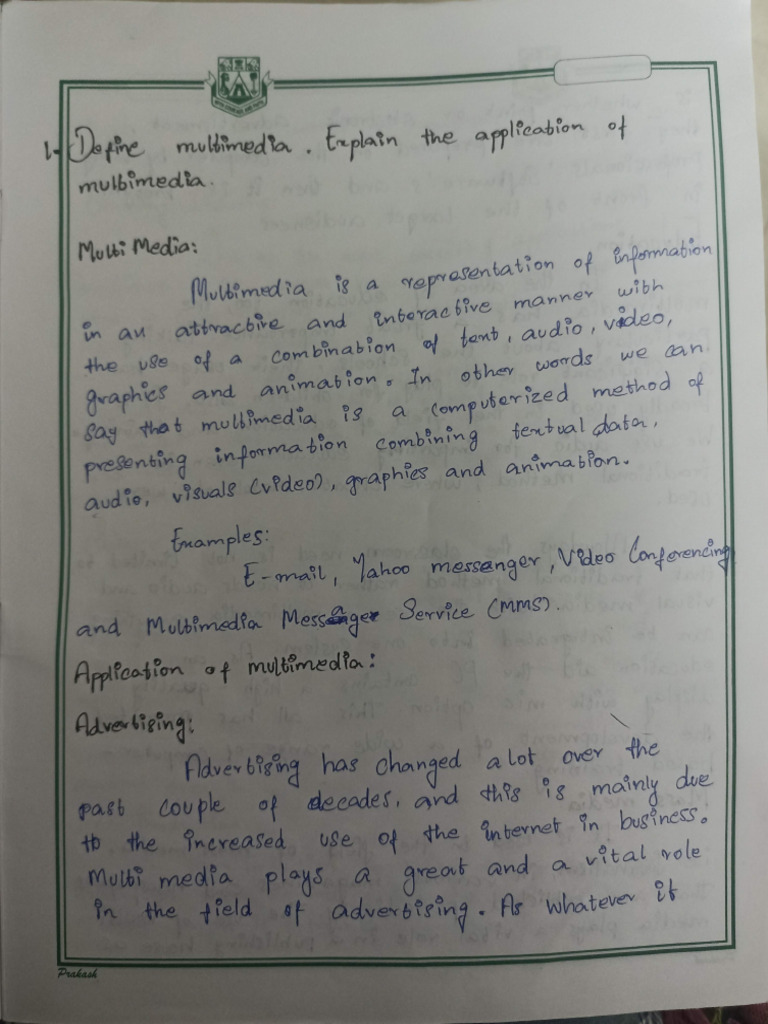 1. Define multimedia. Explain the application of
multimedia.
Multi Media:
Multimedia is a representation of information
in an attractive and interactive manner with
the use of a combination of text, audio, video,
graphics and animation. In other words we can
say that multimedia is a computerized method of
presenting information combining textual data,
audio, visuals (video), graphics and animation.
Examples:
E-mail, Yahoo messanger, Video Conferencing
and Multimedia Message Service (MMS).
Application of multimedia:
Advertising:
Advertising has changed a lot over the
past couple of decades, and this is mainly due
to the increased use of the internet in business.
Multi media plays a great and a vital role
in the field of advertising. As whatever it
Prakash